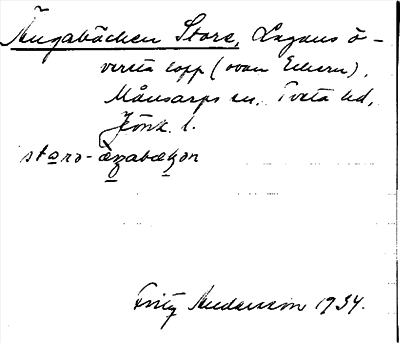 Ängabäcken Stora, Lagans ö-
versta lopp (ovan Eckern),
Månsarps sn, Tveta hd,
Jönk. l.
stora-äŋabäkən
Fritz Andersson 1934.